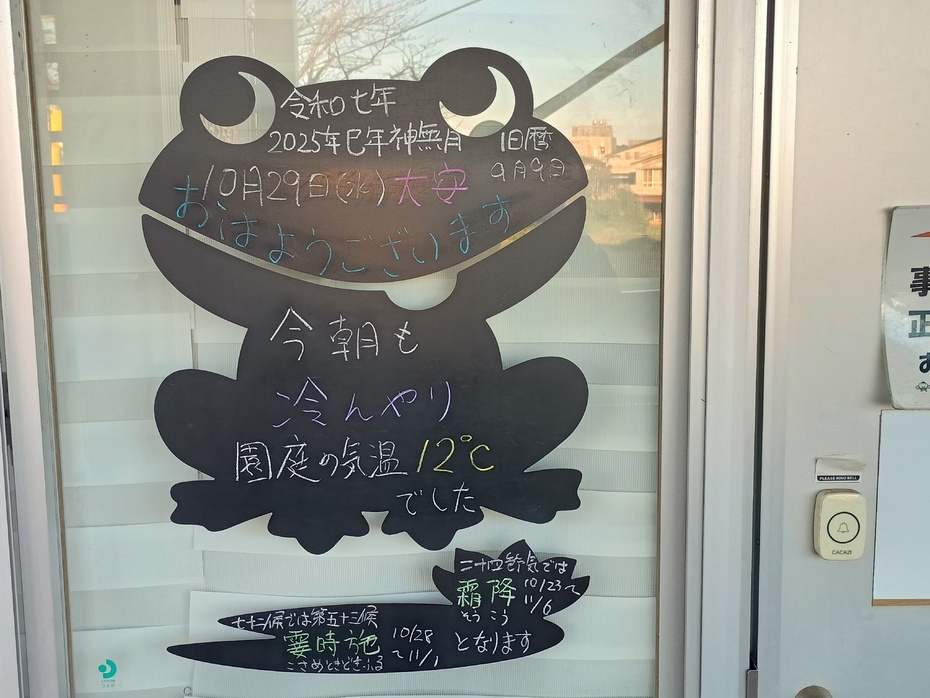 令和七年
2025年巳年神無月 旧暦
9月9日
10月29日(水)大安
おはようございます
今朝も
冷んやり
園庭の気温12℃
でした
二十四節気では
霜降 10/23〜
11/6
そうこう
となります
七十二候では第五十三候
霎時施 10/28
〜11/1
こさめときどきふる
PLEASE RING BELL
CACAZI
事
正
お